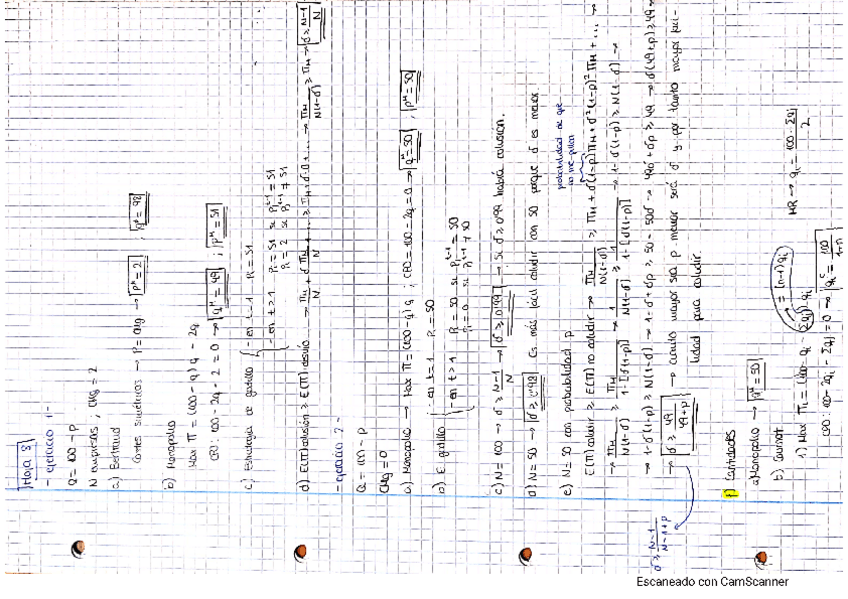 Hoja 3
- ejercicio 1-
Q = 100 - P
N empresas ; CMg = 2
a) Bertrand
Costes simétricos → P = CMg → P* = 2 ; Q* = 98
b) Monopolio
Max Π = (100 - q) q - 2q
CPO: 100 - 2q - 2 = 0 → q^M = 49 ; P^M = 51
c) Estrategia de gatillo
- en t = 1 Pi = 51
- en t > 1 Pi = 51 si Pj^t-1 = 51
Pi = 2 si Pj^t-1 ≠ 51
d) E(Π) colusión ≥ E(Π) desvío → ΠM/N + δ ΠM/N + ... ≥ ΠM + δ·0 + ... → ΠM/N(1-δ) ≥ ΠM → δ ≥ N-1/N
- ejercicio 2 -
Q = 100 - P
CMg = 0
a) Monopolio → Max Π = (100 - q) q ; CPO = 100 - 2q = 0 → q^M = 50 ; P^M = 50
b) E. gatillo
- en t = 1 Pi = 50
- en t > 1 Pi = 50 si Pj^t-1 = 50
Pi = 0 si Pj^t-1 ≠ 50
c) N = 100 → δ ≥ N-1/N → δ ≥ 0'99 → si δ ≥ 0'99 habrá colusión.
d) N = 50 → δ ≥ 0'98 Es más fácil coludir con 50 porque δ es menor
e) N = 50 con probabilidad p
probabilidad de que
no me pillan
E(Π) coludir ≥ E(Π) no coludir → ΠM/N(1-δ) ≥ ΠM + δ(1-p)ΠM + δ²(1-p)² ΠM + ... →
→ ΠM/N(1-δ) ≥ ΠM/1-[δ(1-p)] → 1/N(1-δ) ≥ 1/1-[δ(1-p)] → 1-δ(1-p) ≥ N(1-δ) →
→ 1-δ(1-p) ≥ N(1-δ) → 1-δ+δp ≥ 50-50δ → 49δ+δp ≥ 49 → δ(49+p) ≥ 49 →
→ δ ≥ 49/49+p → cuanto mayor sea p menor será δ y por tanto mayor faci-
lidad para coludir.
δ ≥ N-1/N-1+p
f) Cantidades
a) Monopolio → q^M = 50
b) Cournot
1) Max Πi = (100 - qi - Σqj) qi
= (n-1) qi
CPO: 100 - 2qi - Σqj = 0 → qi^c = 100/1+n
MR → qi = 100 - Σqj/2
Escaneado con CamScanner